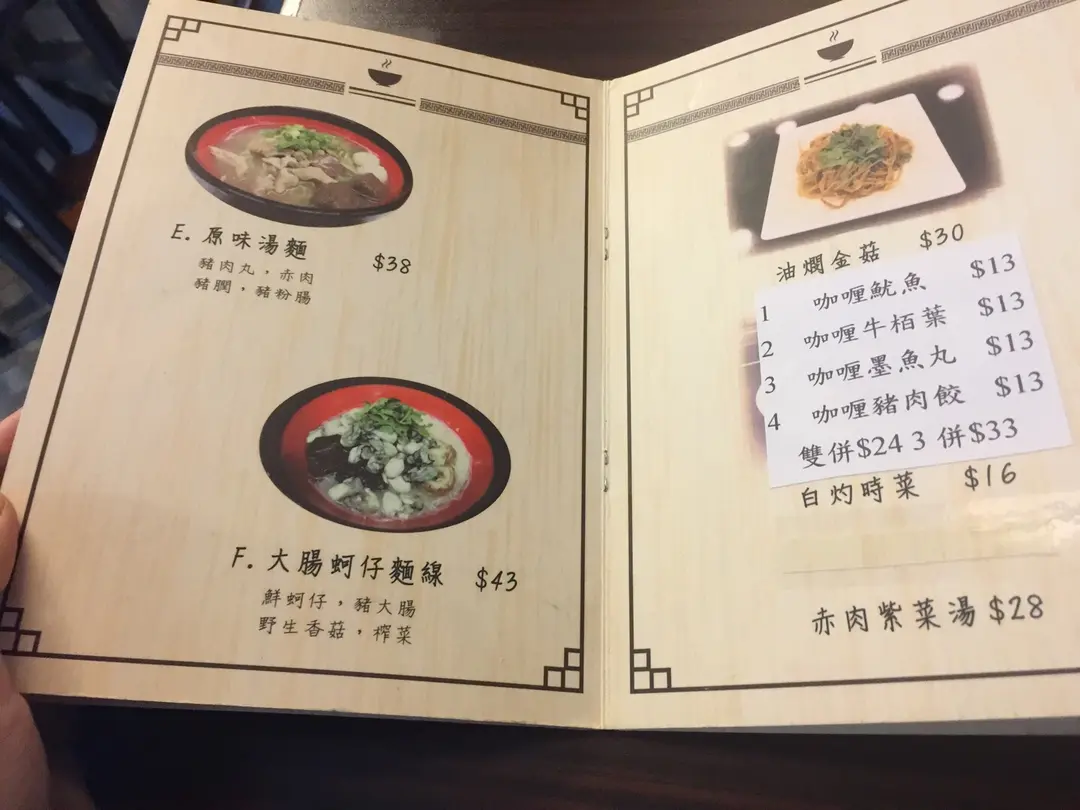 E. 原味湯麵 $38
豬肉丸，赤肉
豬膶，豬粉腸
F. 大腸蚵仔麵線 $43
鮮蚵仔，豬大腸
野生香菇，榨菜
油燜金菇 $30
1 咖喱魷魚 $13
2 咖喱牛栢葉 $13
3 咖喱墨魚丸 $13
4 咖喱豬肉餃 $13
雙併$24 3 併$33
白灼時菜 $16
赤肉紫菜湯 $28